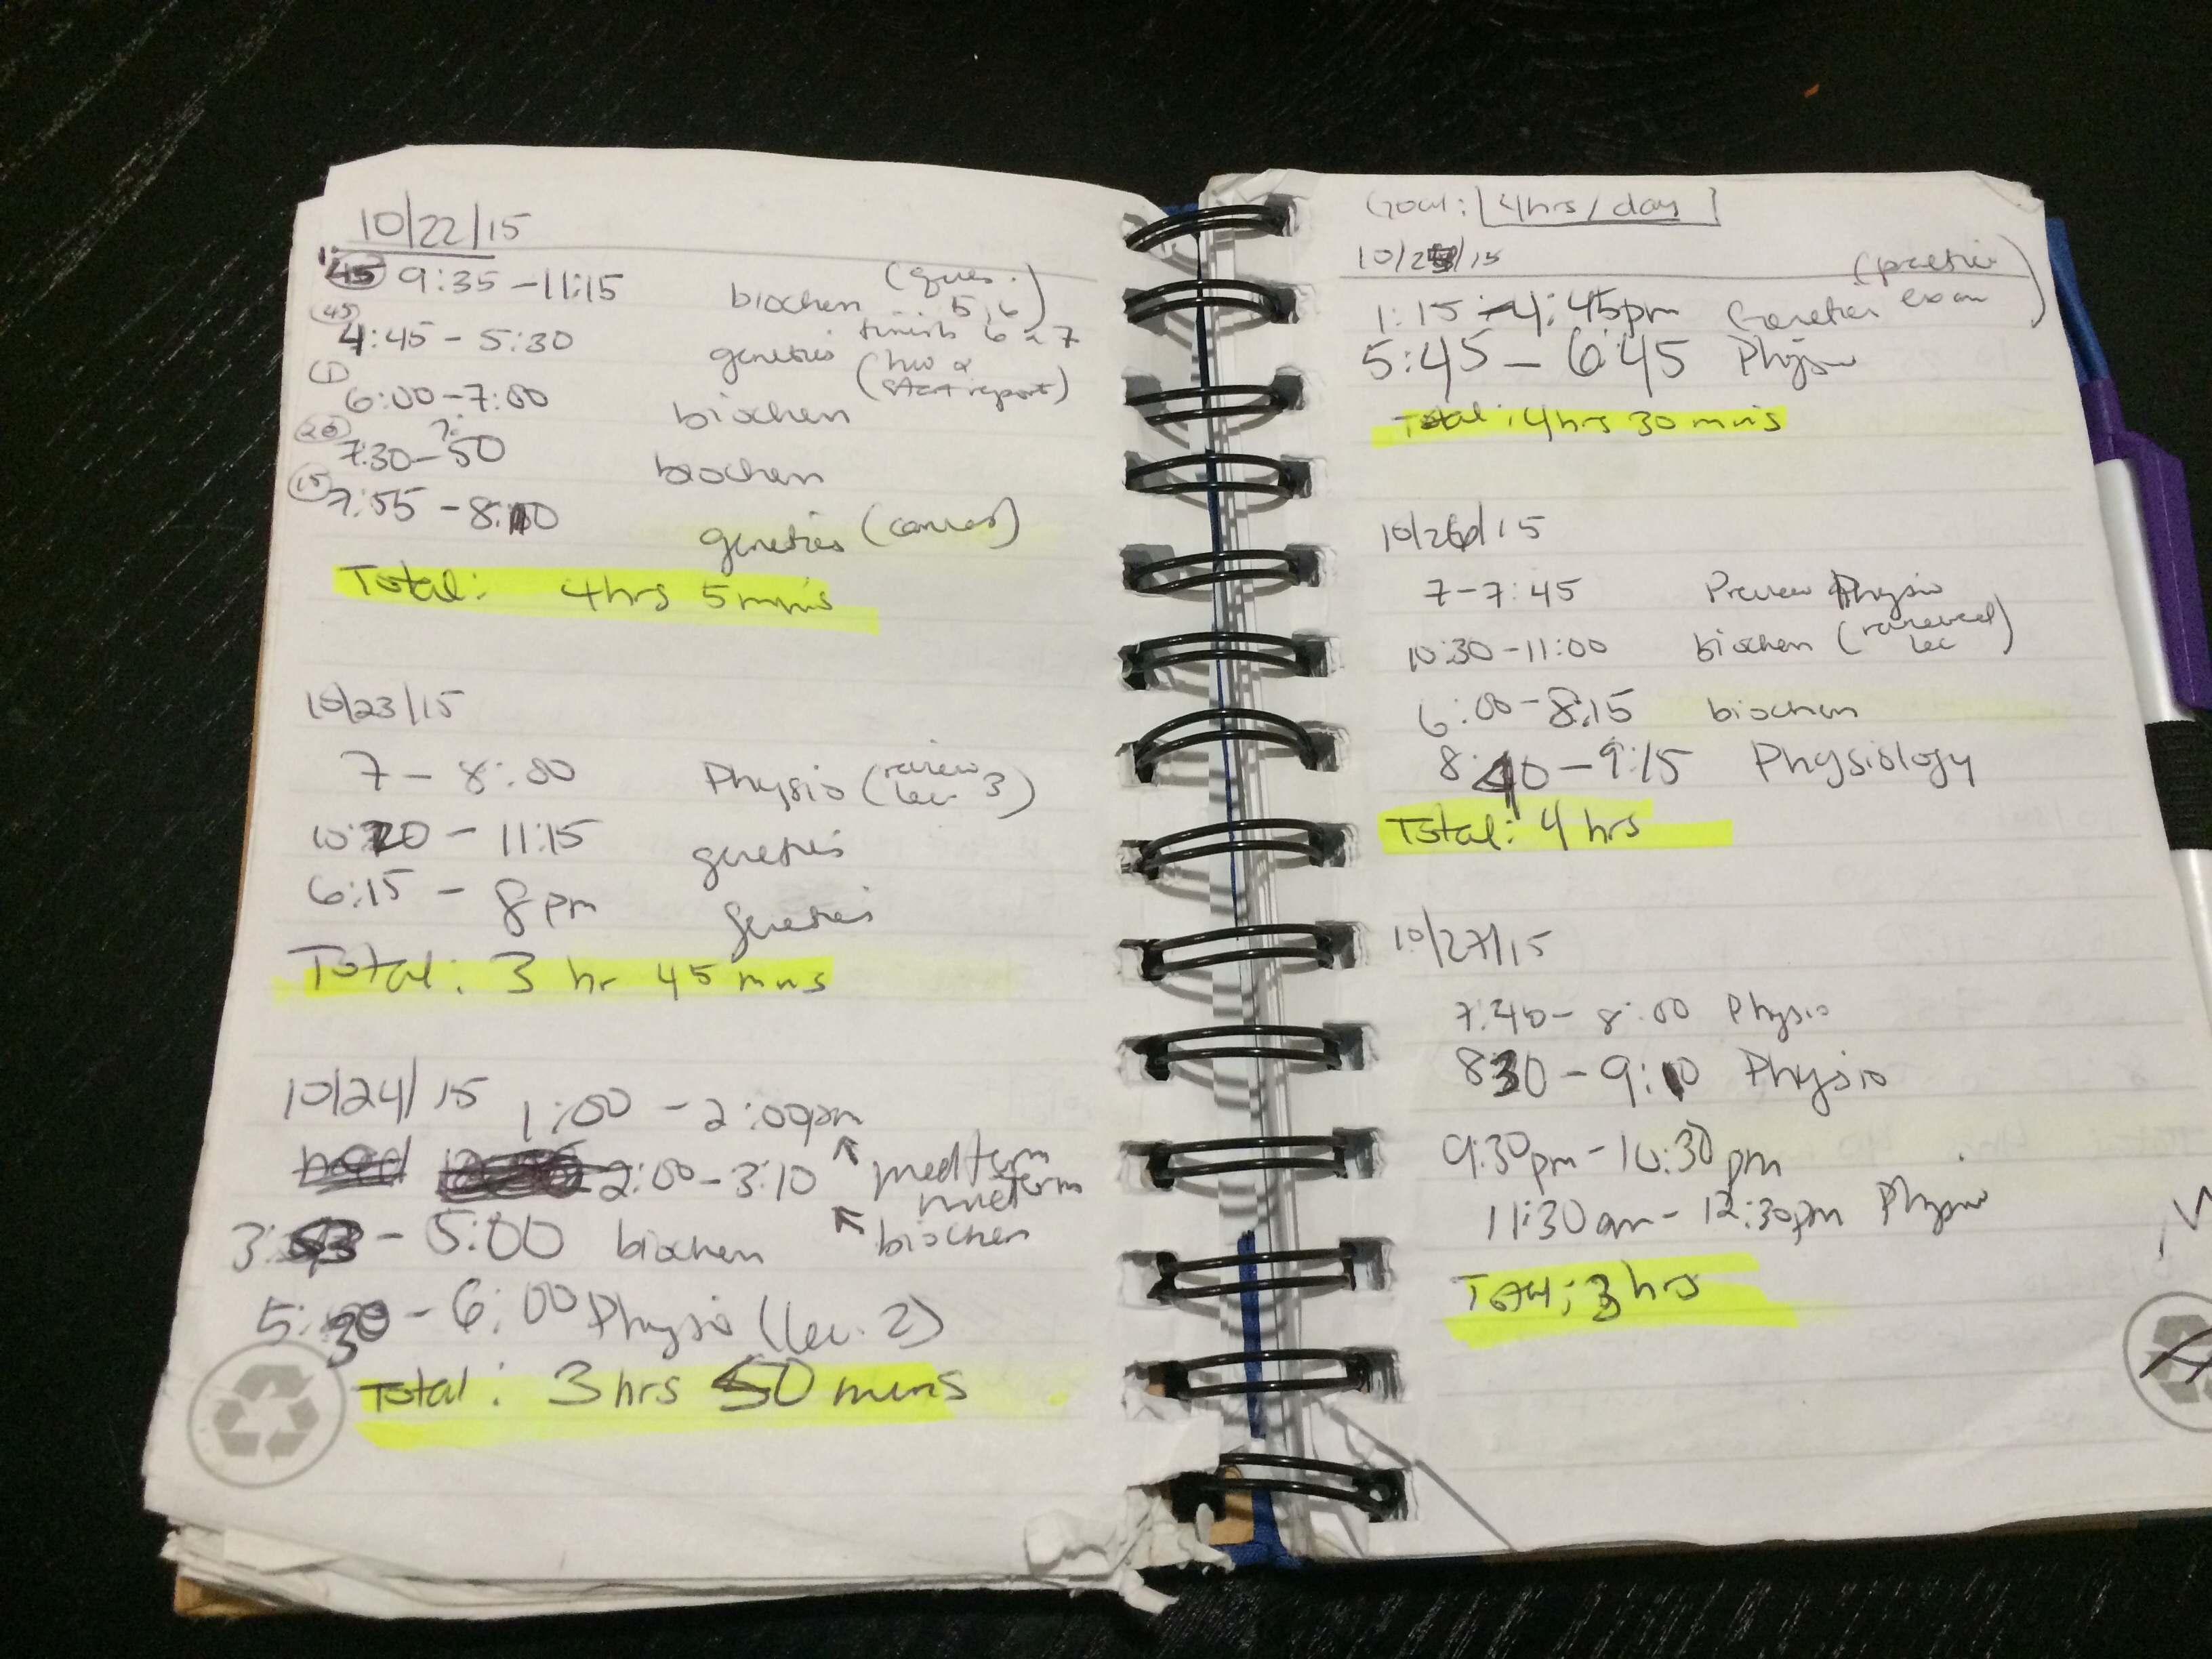 10/22/15
1:45 9:35 - 11:15 biochem (ques. 5,6)
finish 6 & 7
(45)
4:45 - 5:30 genetics (hw & start report)
(1)
6:00 - 7:00 biochem
(20)
7:30 - 7:50 biochem
(15)
7:55 - 8:10 genetics (canvas)
Total: 4hrs 5 mins
10/23/15
7 - 8:00 Physio (review lec 3)
10:20 - 11:15 genetics
6:15 - 8pm genetics
Total: 3 hr 45 mns
10/24/15 1:00 - 2:00pm
2:00 - 3:10 medterm
midterm
biochem
3: - 5:00 biochem
5:30 - 6:00 Physio (lec. 2)
Total: 3 hrs 50 mins
Goal: 4hrs/day
10/25/15
1:15 - 4:45pm Genetics (practice exam)
5:45 - 6:45 Physio
Total: 4hrs 30 mins
10/26/15
7 - 7:45 Preview Physio
10:30 - 11:00 biochem (reviewed lec)
6:00 - 8:15 biochem
8:40 - 9:15 Physiology
Total: 4 hrs
10/27/15
7:40 - 8:00 Physio
830 - 9:10 Physio
9:30pm - 10:30 pm
11:30am - 12:30pm Physio
Total: 3 hrs